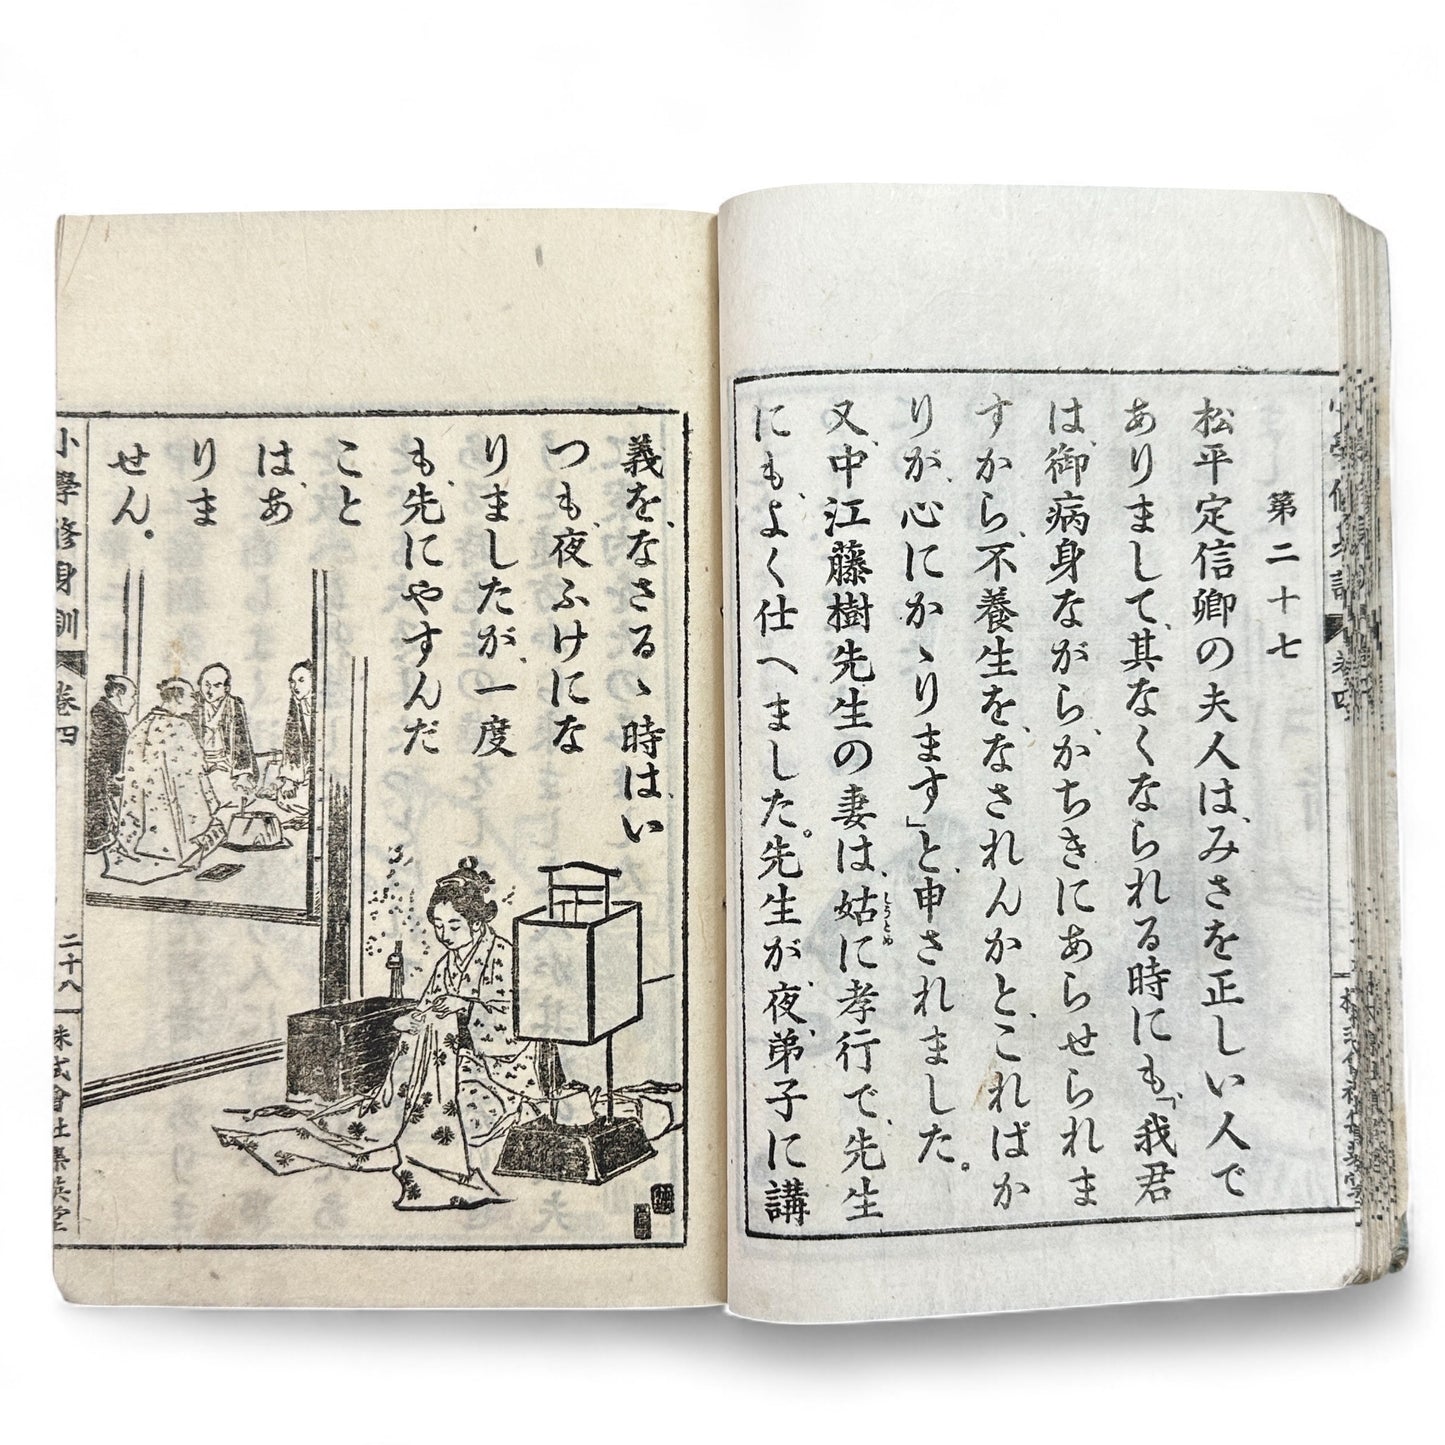 第二十七
松平定信卿の夫人は、みさを正しい人で
ありまして、其なくなられる時にも「我君
は、御病身ながら、がちきにあらせられま
すから、不養生を、なされんかと、こればか
りが、心にかゝります」と、申されました。
又、中江藤樹先生の妻は、姑に孝行で、先生
しうとめ
にも、よく仕へました。先生が、夜、弟子に講
義を、なさるゝ時は、い
つも、夜ふけにな
りましたが、一度
も、先にやすんだ
こと
は、あ
りま
せん。
小學修身訓 卷四 二十八 株式會社集英堂